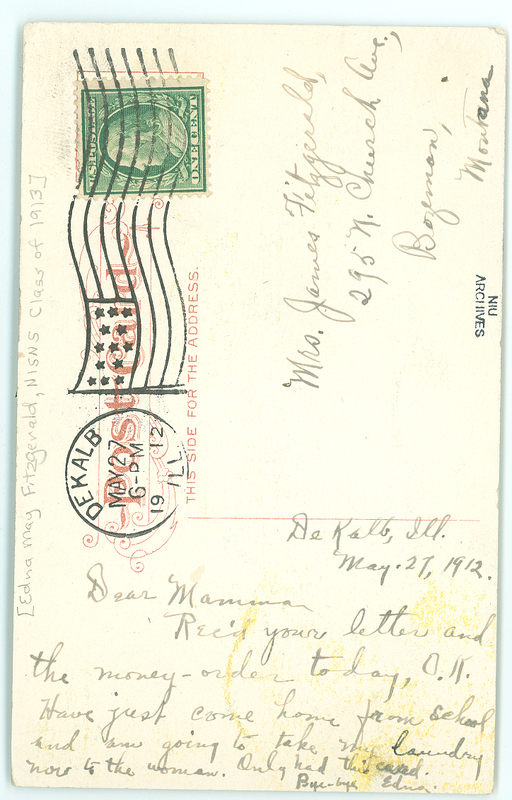 [Edna May Fitzgerald, NISNS Class of 1913]
U.S. POSTAGE
ONE CENT
DEKALB
MAY 27
6-PM
1912
ILL.
Post Card
THIS SIDE FOR THE ADDRESS.
Mrs. James Fitzgerald,
295 N. Church Ave.,
Bozeman,
Montana
NIU
ARCHIVES
De Kalb, Ill.
May. 27, 1912.
Dear Mamma
Rec'd your letter and
the money-order today, O.K.
Have just come home from school
and am going to take my laundry
now to the woman. Only had this card.
Bye-bye Edna.